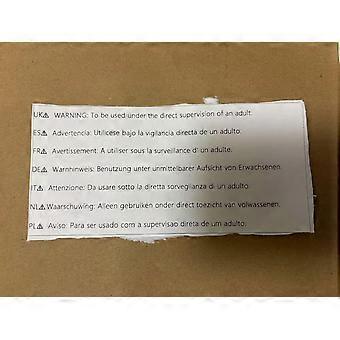 UK⚠ WARNING: To be used under the direct supervision of an adult.
ES⚠ Advertencia: Utilicese bajo la vigilancia directa de un adulto.
FR⚠ Avertissement: A utiliser sous la surveillance d' un adulte.
DE⚠ Warnhinweis: Benutzung unter unmittelbarer Aufsicht von Erwachsenen.
IT⚠ Attenzione: Da usare sotto la diretta sorveglianza di un adulto.
NL⚠ Waarschuwing: Alleen gebruiken onder direct toezicht van volwassenen.
PL⚠ Aviso: Para ser usado com a supervisao direta de um adulto.